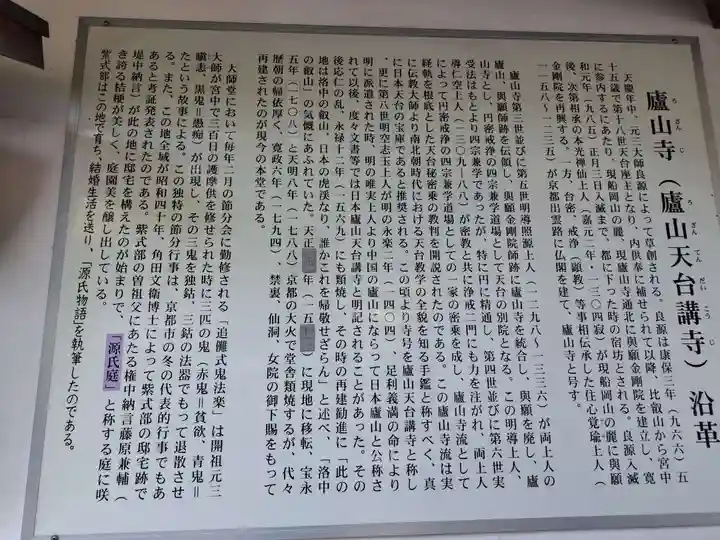 廬山寺（廬山天台講寺）沿革
ろ ざん じ
ろ ざん てん だい こう じ
天慶年中、元三大師良源によって草創される。良源は康保三年（九六六）五
十五歳で第十八世天台座主となり、内供奉に補せられて以降、比叡山から宮中
に参内するにあたり、現船岡山の麓、現廬山寺通北に與願金剛院を建立し、寛
和元年（九八五）正月三日入滅まで、都に下った時の宿坊とされる。良源入滅
後、次第相承の本光禅仙上人（嘉元二年・一三〇四寂）が現船岡山の麓に與願
金剛院を再興する。一方、台密、戒浄（顕教）等事相伝承した住心覚瑜上人（
一一五八～一二三五）が京都出雲路に仏閣を建て、廬山寺と号す。
廬山寺第三世並びに第五世明導照源上人（一二九八～一三三六）が両上人の
廬山、與願師跡を伝領し、與願金剛院師跡に廬山寺を統合し、與願を廃し、廬
山寺とし、円密戒浄の四宗兼学道場として天台の別院となる。この明導上人、
受法はもとより四宗兼学であったが、特に円に精通し、第四世並びに第六世実
導仁空上人（一三〇九～一三八八）が密教と共に浄戒二門にも力を注がれ、両上人
によって円密戒浄の四宗兼学道場としての一家の密乗を成し、廬山寺流として
経軌を根底とした天台秘密乗の教判を開説されたのである。この廬山寺流は実
に伝教大師より南北朝時代における天台教学の全貌を知る手鑑と称すべく、真
に日本天台の宝庫であると推奨される。この頃より寺号を廬山天台講寺と称し
、更に第八世明空志玉上人が明の永楽二年（一四〇四）、足利義満の命により
明に派遣された時、明の唯実上人より中国の廬山にならって日本廬山と公称さ
れて以後、度々文書等では日本廬山天台講寺と明記されることがあった。その
後応仁の乱、永禄十二年（一五六九）にも類焼し、その時の再建勧進に「此の
地は洛中の叡山、日本の虎渓なり、誰かこれを帰敬せざらん」と述べ、「洛中
の叡山」の気慨にあふれていた。天正 年（一五 ）に現地に移転、宝永
五年（一七〇八）と天明八年（一七八八）京都の大火で堂舎類焼するが、代々
歴朝の帰依厚く、寛政六年（一七九四）、禁裏、仙洞、女院の御下賜をもって
再建されたのが現今の本堂である。
大師堂において毎年二月の節分会に勤修される「追儺式鬼法楽」は開祖元三
大師が宮中で三百日の護摩供を修せられた時に三匹の鬼（赤鬼＝貪欲、青鬼＝
瞋恚、黒鬼＝愚痴）が出現し、その三鬼を独鈷、三鈷の法器でもって退散させ
たという故事による。この独特の節分行事は、京都市の冬の代表的行事でもあ
る。また、この地全域が昭和四十年、角田文衛博士によって紫式部の邸宅跡で
あると考証発表されたのである。紫式部の曽祖父にあたる権中納言藤原兼輔（
堤中納言）が此の地に邸宅を構えたのが始まりで、「源氏庭」と称する庭に咲
き誇る桔梗が美しく、庭園美を醸し出している。
紫式部はこの地で育ち、結婚生活を送り、『源氏物語』を執筆したのである。